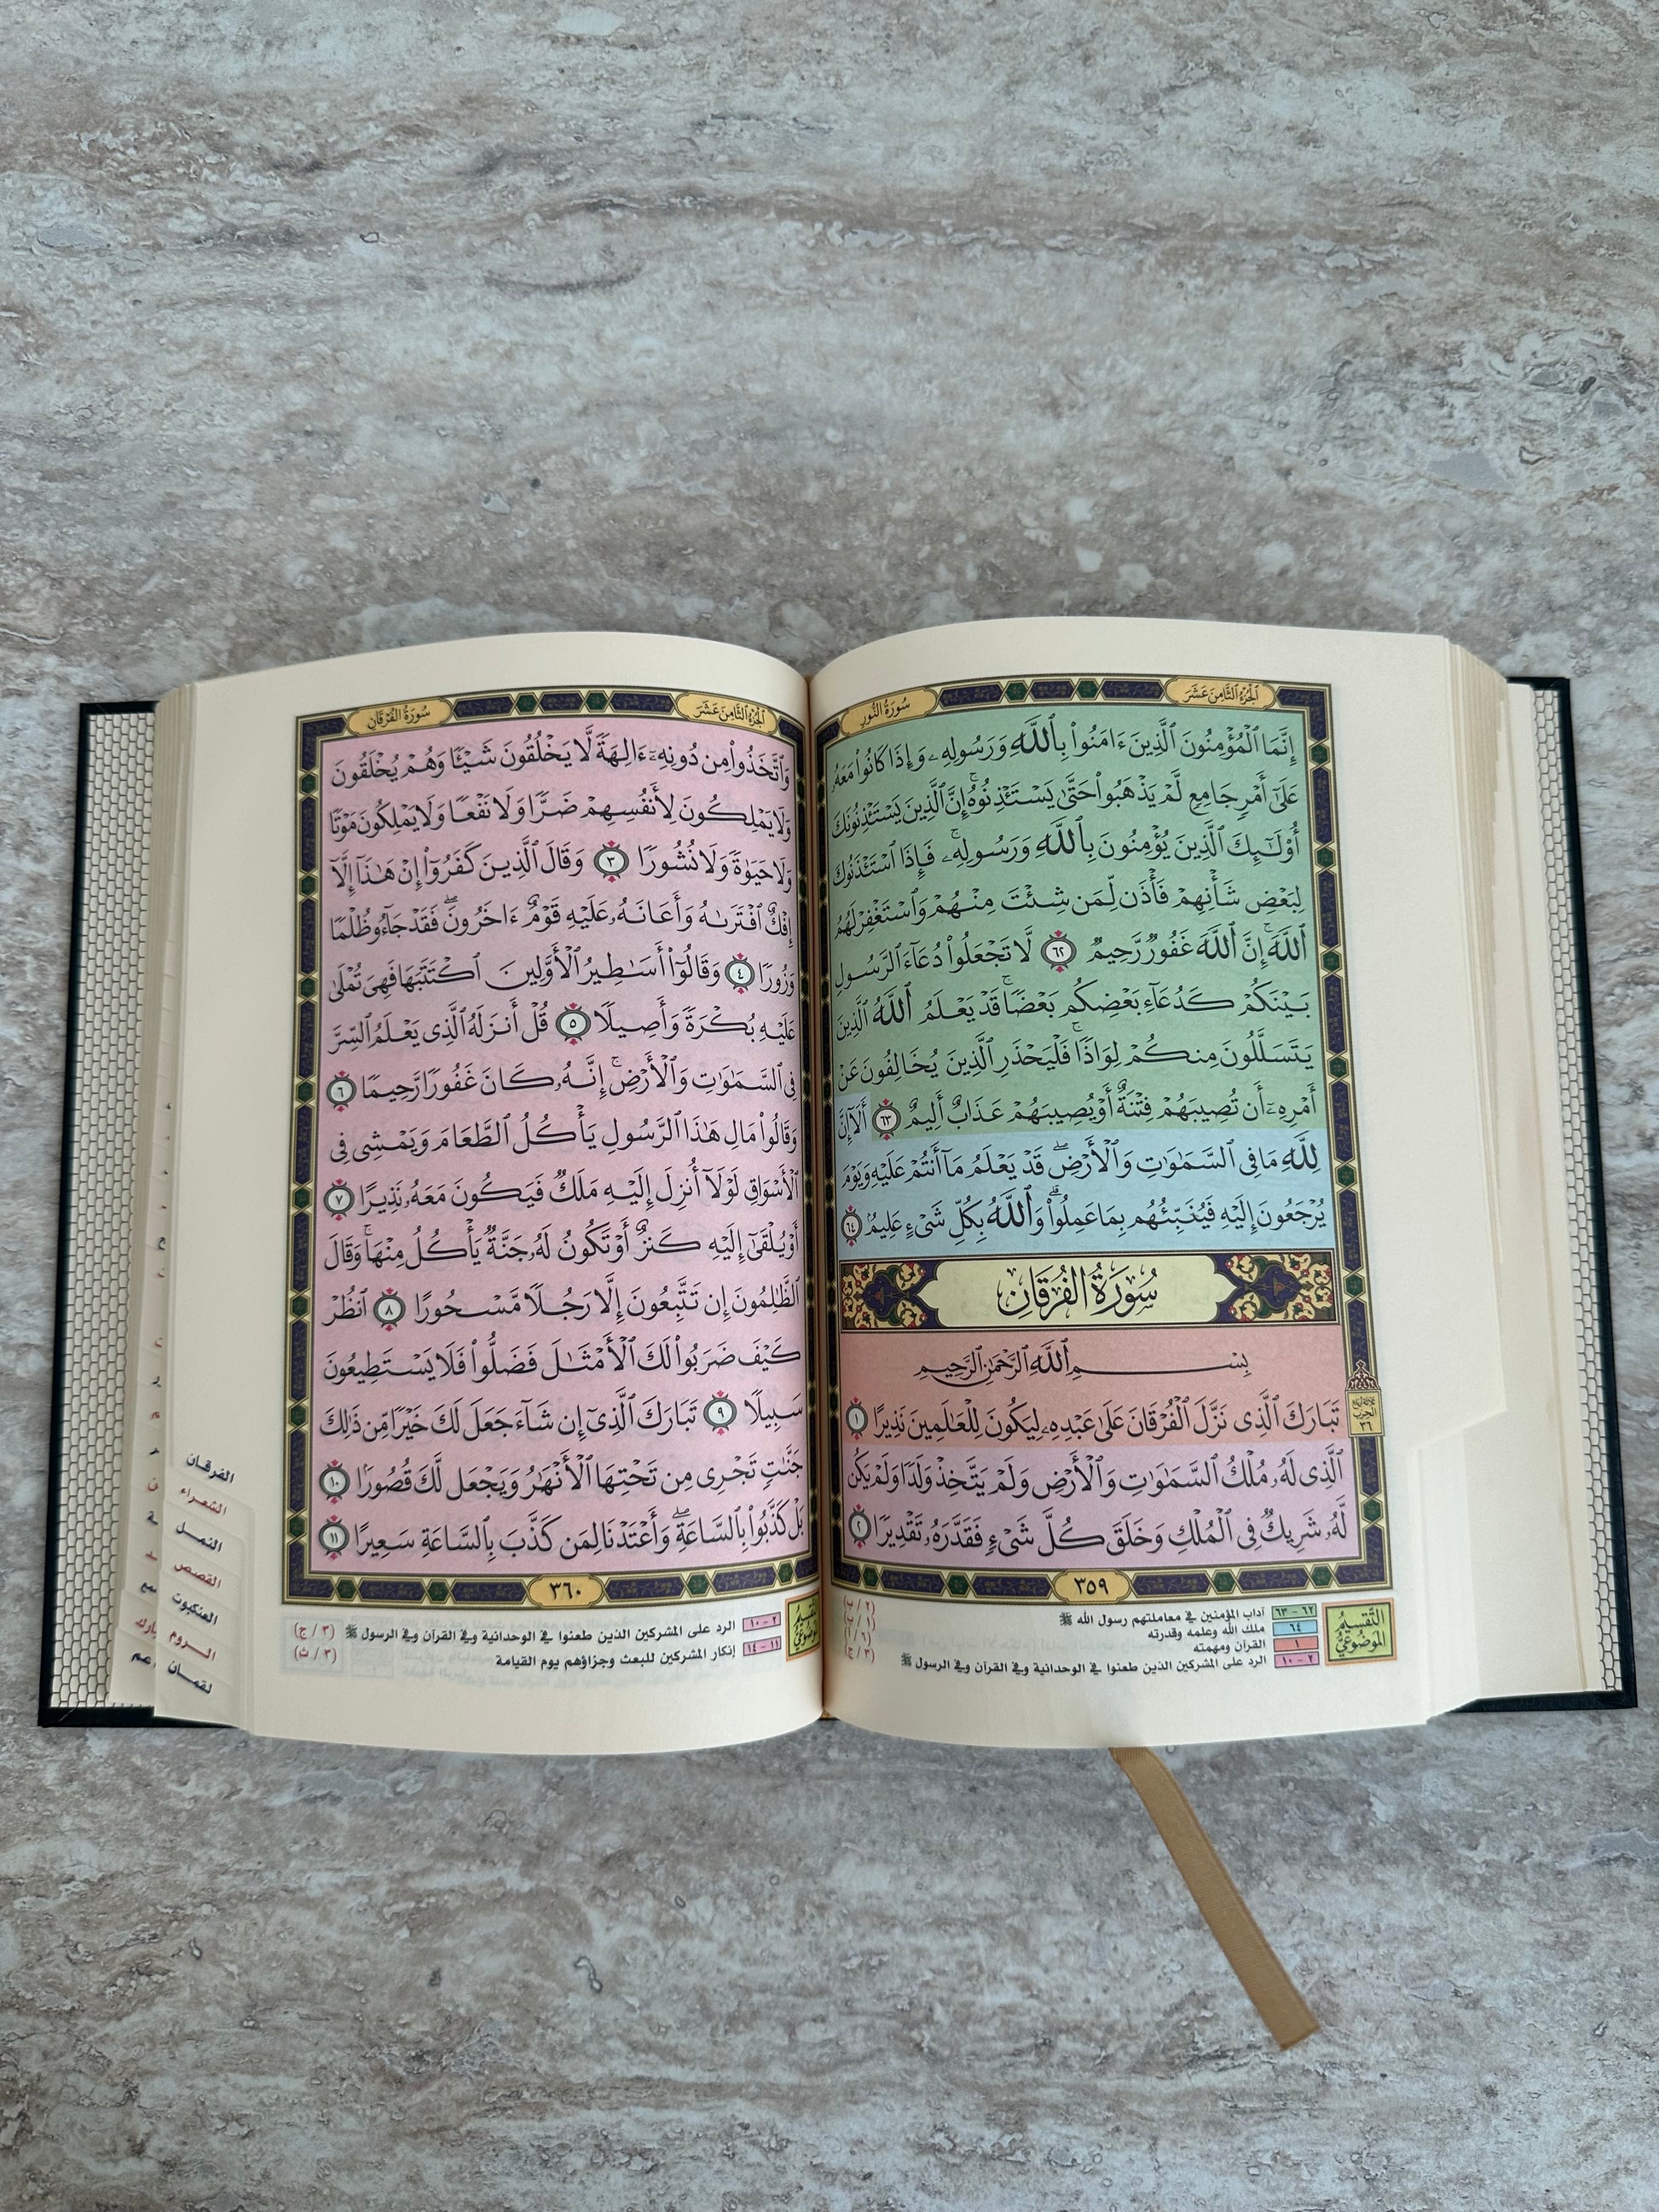 الجزء الثامن عشر
سورة النور
إِنَّمَا ٱلْمُؤْمِنُونَ ٱلَّذِينَ ءَامَنُوا۟ بِٱللَّهِ وَرَسُولِهِۦ وَإِذَا كَانُوا۟ مَعَهُۥ
عَلَىٰٓ أَمْرٍ جَامِعٍ لَّمْ يَذْهَبُوا۟ حَتَّىٰ يَسْتَـْٔذِنُوهُ ۚ إِنَّ ٱلَّذِينَ يَسْتَـْٔذِنُونَكَ
أُو۟لَـٰٓئِكَ ٱلَّذِينَ يُؤْمِنُونَ بِٱللَّهِ وَرَسُولِهِۦ ۚ فَإِذَا ٱسْتَـْٔذَنُوكَ
لِبَعْضِ شَأْنِهِمْ فَأْذَن لِّمَن شِئْتَ مِنْهُمْ وَٱسْتَغْفِرْ لَهُمُ
ٱللَّهَ ۚ إِنَّ ٱللَّهَ غَفُورٌ رَّحِيمٌ ٦٢ لَّا تَجْعَلُوا۟ دُعَآءَ ٱلرَّسُولِ
بَيْنَكُمْ كَدُعَآءِ بَعْضِكُم بَعْضًا ۚ قَدْ يَعْلَمُ ٱللَّهُ ٱلَّذِينَ
يَتَسَلَّلُونَ مِنكُمْ لِوَاذًا ۚ فَلْيَحْذَرِ ٱلَّذِينَ يُخَالِفُونَ عَنْ
أَمْرِهِۦٓ أَن تُصِيبَهُمْ فِتْنَةٌ أَوْ يُصِيبَهُمْ عَذَابٌ أَلِيمٌ ٦٣ أَلَآ إِنَّ
لِلَّهِ مَا فِى ٱلسَّمَـٰوَٰتِ وَٱلْأَرْضِ ۖ قَدْ يَعْلَمُ مَآ أَنتُمْ عَلَيْهِ وَيَوْمَ
يُرْجَعُونَ إِلَيْهِ فَيُنَبِّئُهُم بِمَا عَمِلُوا۟ ۗ وَٱللَّهُ بِكُلِّ شَىْءٍ عَلِيمٌۢ ٦٤
سُورَةُ الفُرْقَانِ
بِسْمِ ٱللَّهِ ٱلرَّحْمَـٰنِ ٱلرَّحِيمِ
تَبَارَكَ ٱلَّذِى نَزَّلَ ٱلْفُرْقَانَ عَلَىٰ عَبْدِهِۦ لِيَكُونَ لِلْعَـٰلَمِينَ نَذِيرًا ١
ٱلَّذِى لَهُۥ مُلْكُ ٱلسَّمَـٰوَٰتِ وَٱلْأَرْضِ وَلَمْ يَتَّخِذْ وَلَدًا وَلَمْ يَكُن
لَّهُۥ شَرِيكٌ فِى ٱلْمُلْكِ وَخَلَقَ كُلَّ شَىْءٍ فَقَدَّرَهُۥ تَقْدِيرًا ٢
٣٥٩
التقسيم الموضوعي
٦٢ - ٦٣ آداب المؤمنين في معاملتهم رسول الله ﷺ
٦٤ ملك الله وعلمه وقدرته
١ القرآن ومهمته
٢ - ١٠ الرد على المشركين الذين طعنوا في الوحدانية وفي القرآن وفي الرسول ﷺ
الجزء الثامن عشر
سورة الفرقان
وَٱتَّخَذُوا۟ مِن دُونِهِۦٓ ءَالِهَةً لَّا يَخْلُقُونَ شَيْـًٔا وَهُمْ يُخْلَقُونَ
وَلَا يَمْلِكُونَ لِأَنفُسِهِمْ ضَرًّا وَلَا نَفْعًا وَلَا يَمْلِكُونَ مَوْتًا
وَلَا حَيَوٰةً وَلَا نُشُورًا ٣ وَقَالَ ٱلَّذِينَ كَفَرُوٓا۟ إِنْ هَـٰذَآ إِلَّآ
إِفْكٌ ٱفْتَرَىٰهُ وَأَعَانَهُۥ عَلَيْهِ قَوْمٌ ءَاخَرُونَ ۖ فَقَدْ جَآءُو ظُلْمًا
وَزُورًا ٤ وَقَالُوٓا۟ أَسَـٰطِيرُ ٱلْأَوَّلِينَ ٱكْتَتَبَهَا فَهِىَ تُمْلَىٰ
عَلَيْهِ بُكْرَةً وَأَصِيلًا ٥ قُلْ أَنزَلَهُ ٱلَّذِى يَعْلَمُ ٱلسِّرَّ
فِى ٱلسَّمَـٰوَٰتِ وَٱلْأَرْضِ ۚ إِنَّهُۥ كَانَ غَفُورًا رَّحِيمًا ٦
وَقَالُوا۟ مَالِ هَـٰذَا ٱلرَّسُولِ يَأْكُلُ ٱلطَّعَامَ وَيَمْشِى فِى
ٱلْأَسْوَاقِ ۙ لَوْلَآ أُنزِلَ إِلَيْهِ مَلَكٌ فَيَكُونَ مَعَهُۥ نَذِيرًا ٧
أَوْ يُلْقَىٰٓ إِلَيْهِ كَنزٌ أَوْ تَكُونُ لَهُۥ جَنَّةٌ يَأْكُلُ مِنْهَا ۚ وَقَالَ
ٱلظَّـٰلِمُونَ إِن تَتَّبِعُونَ إِلَّا رَجُلًا مَّسْحُورًا ٨ ٱنظُرْ
كَيْفَ ضَرَبُوا۟ لَكَ ٱلْأَمْثَـٰلَ فَضَلُّوا۟ فَلَا يَسْتَطِيعُونَ
سَبِيلًا ٩ تَبَارَكَ ٱلَّذِىٓ إِن شَآءَ جَعَلَ لَكَ خَيْرًا مِّن ذَٰلِكَ
جَنَّـٰتٍ تَجْرِى مِن تَحْتِهَا ٱلْأَنْهَـٰرُ وَيَجْعَل لَّكَ قُصُورًۢا ١٠
بَلْ كَذَّبُوا۟ بِٱلسَّاعَةِ ۖ وَأَعْتَدْنَا لِمَن كَذَّبَ بِٱلسَّاعَةِ سَعِيرًا ١١
٣٦٠
٢ - ١٠ الرد على المشركين الذين طعنوا في الوحدانية وفي القرآن وفي الرسول ﷺ (٣ / ج)
١١ - ١٤ إنكار المشركين للبعث وجزاؤهم يوم القيامة (٣ / ث)
الفرقان
الشعراء
النمل
القصص
العنكبوت
الروم
لقمان